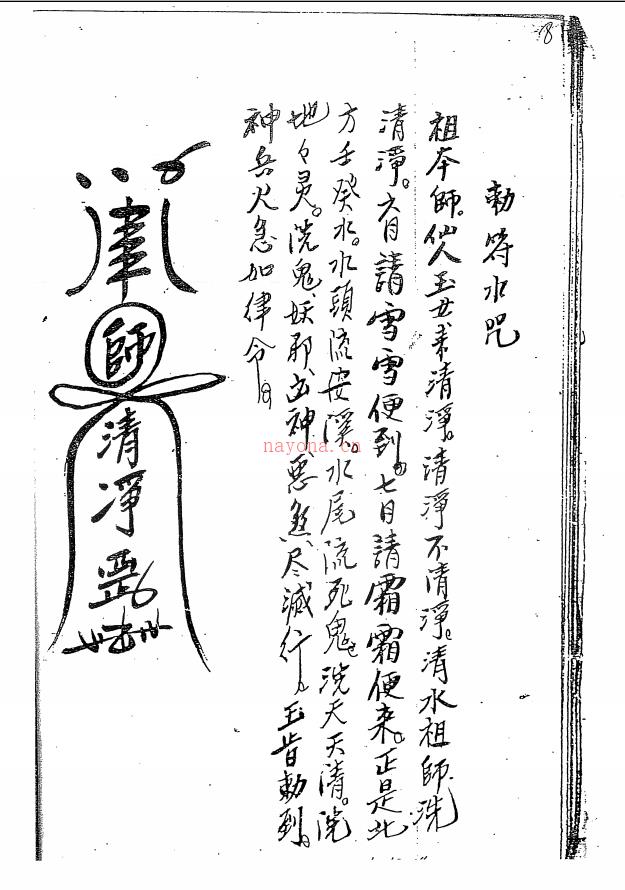 18
勅符水咒
祖本師。仙人玉女来清淨。清淨不清淨。清水祖師洗
清淨。六月請雪雪便到。七月請霜霜便来。正是北
方壬癸水。水頭流安溪。水尾流死鬼。洗天天清。洗
地々灵。洗鬼、妖邪、凶神、惡煞、尽滅行。玉旨勅到。
神兵火急如律令
師
清淨
nayona.cn